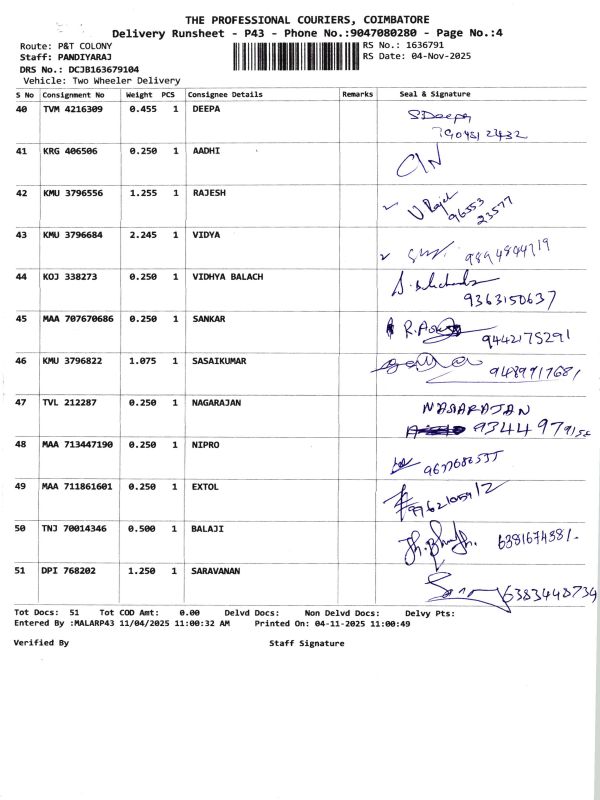 THE PROFESSIONAL COURIERS, COIMBATORE
Delivery Runsheet - P43 - Phone No.:9047080280 - Page No.:4
Route: P&T COLONY
RS No.: 1636791
Staff: PANDIYARAJ
RS Date: 04-Nov-2025
DRS No.: DCJB163679104
Vehicle: Two Wheeler Delivery
S No Consignment No Weight PCS Consignee Details Remarks Seal & Signature
40 TVM 4216309 0.455 1 DEEPA S Deepa
41 KRG 406506 0.250 1 AADHI
42 KMU 3796556 1.255 1 RAJESH 96553
23577
43 KMU 3796684 2.245 1 VIDYA
44 KOJ 338273 0.250 1 VIDHYA BALACH
9363150637
45 MAA 707670686 0.250 1 SANKAR 9442175291
46 KMU 3796822 1.075 1 SASAIKUMAR 9489917681
47 TVL 212287 0.250 1 NAGARAJAN NAGARAJAN
48 MAA 713447190 0.250 1 NIPRO
49 MAA 711861601 0.250 1 EXTOL
50 TNJ 70014346 0.500 1 BALAJI
51 DPI 768202 1.250 1 SARAVANAN 6383448734
Tot Docs: 51 Tot COD Amt: 0.00 Delvd Docs: Non Delvd Docs: Delvy Pts:
Entered By :MALARP43 11/04/2025 11:00:32 AM Printed On: 04-11-2025 11:00:49
Verified By Staff Signature